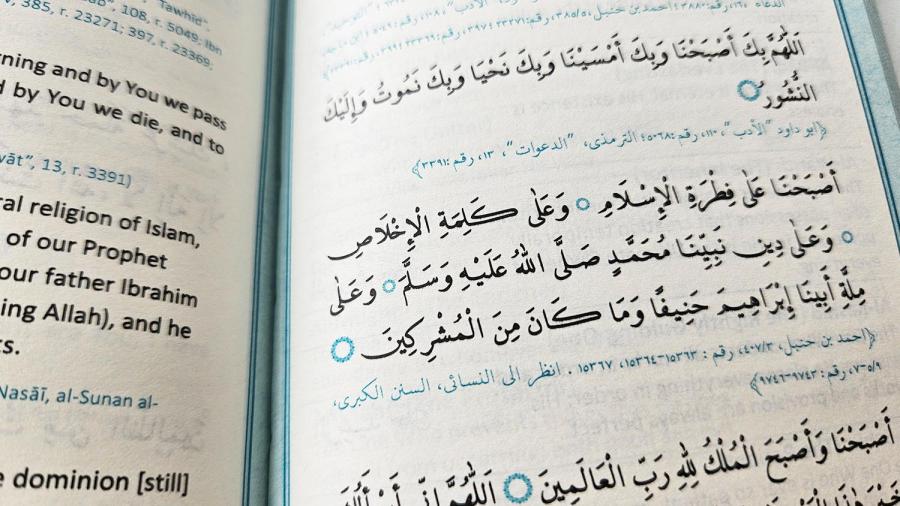 "Tawhid"
108, r. 5049; Ibn
V, 385, r. 23271; 397, r. 23369;
rning and by You we pass
d by You we die, and to
wāt", 13, r. 3391)
ral religion of Islam,
of our Prophet
our father Ibrahim
ing Allah), and he
s.
Nasāī, al-Sunan al-
e dominion [still]
اَللّٰهُمَّ بِكَ أَصْبَحْنَا وَبِكَ أَمْسَيْنَا وَبِكَ نَحْيَا وَبِكَ نَمُوتُ وَإِلَيْكَ
النُّشُورُ
﴿ابو داود "الأدب"، ١١٠، رقم:٥٠٦٨؛ الترمذى، "الدعوات"، ١٣، رقم:٣٣٩١﴾
أَصْبَحْنَا عَلَى فِطْرَةِ الْإِسْلَامِ وَعَلَى كَلِمَةِ الْإِخْلَاصِ
وَعَلَى دِينِ نَبِيِّنَا مُحَمَّدٍ صَلَّى اللّٰهُ عَلَيْهِ وَسَلَّمَ وَعَلَى
مِلَّةِ أَبِينَا إِبْرَاهِيمَ حَنِيفًا وَمَا كَانَ مِنَ الْمُشْرِكِينَ
﴿احمد بن حنبل، ٤٠٧/٣، رقم : ١٥٣٦٣-١٥٣٦٤، ١٥٣٦٧ . انظر الى النسائى، السنن الكبرى،
٥/٩-٧، رقم:٩٧٤٣-٩٧٤٦﴾
أَصْبَحْنَا وَأَصْبَحَ الْمُلْكُ لِلّٰهِ رَبِّ الْعَالَمِينَ اَللّٰهُمَّ إِنِّي